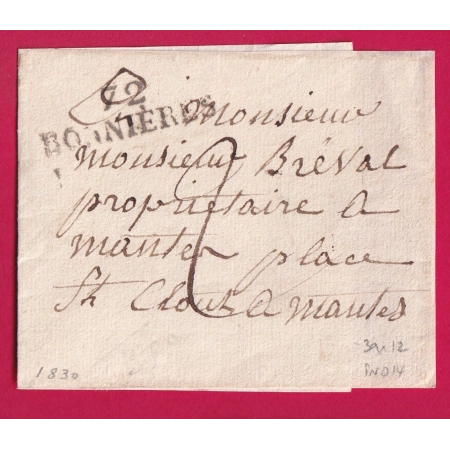 72
BONNIÈRES
Monsieur
monsieur Bréval
proprietaire a
mantes place
St Cloux a mantes
2
1830
IND 14